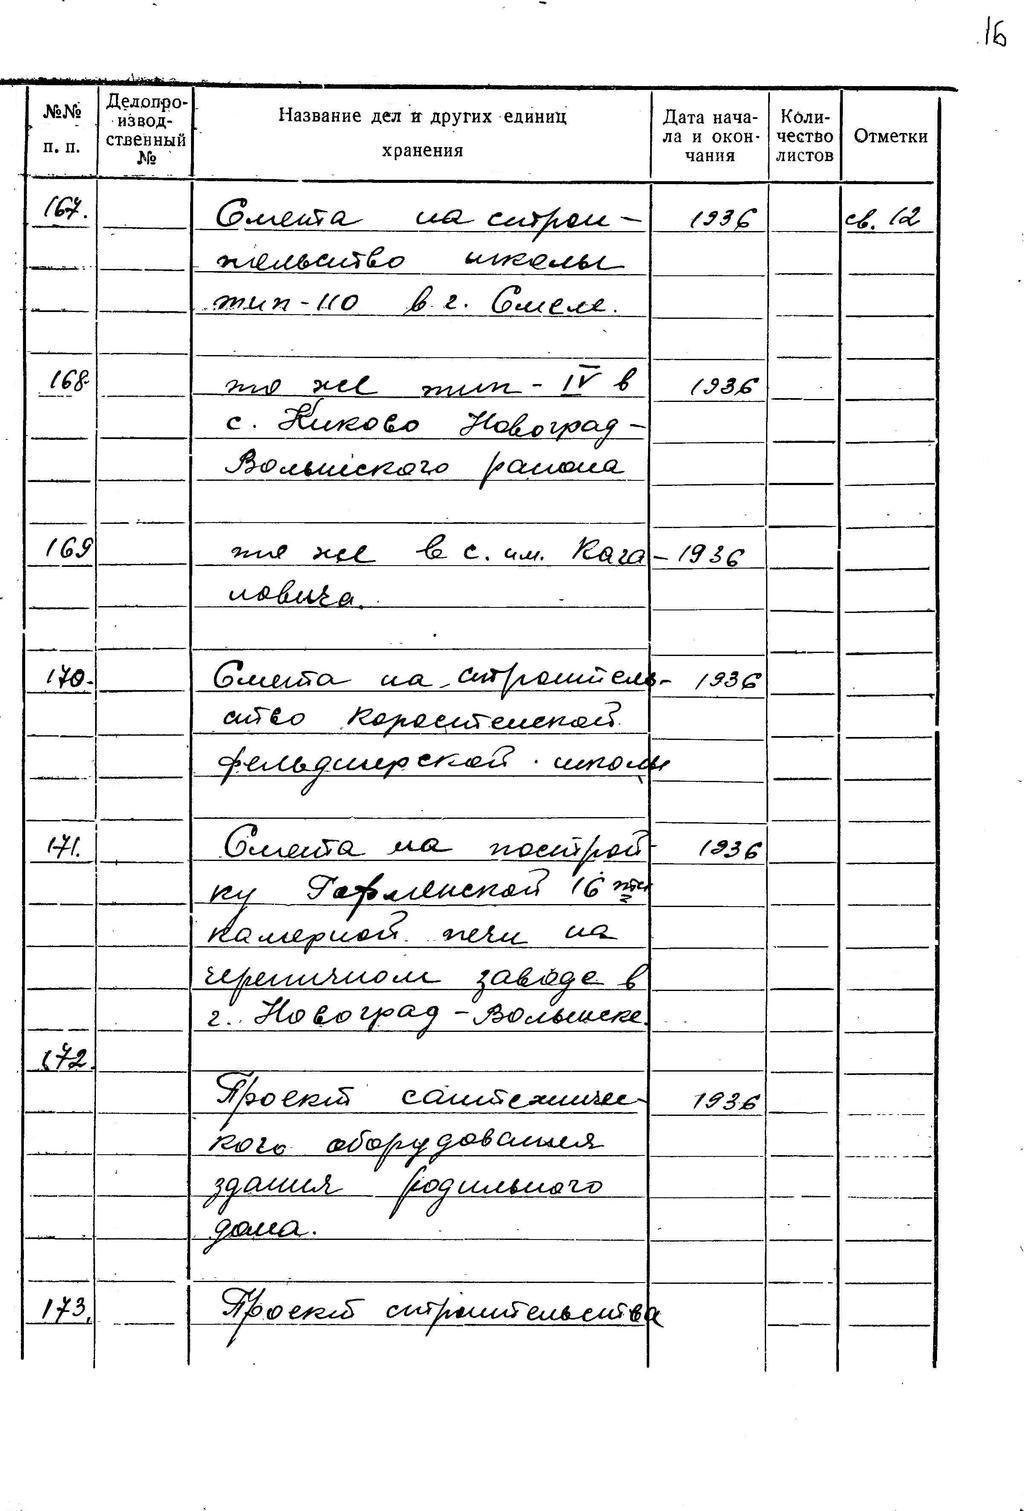 16
№№ п. п.
Делопро-
извод-
ственный
№
Название дел и других единиц
хранения
Дата нача-
ла и окон-
чания
Коли-
чество
листов
Отметки
167. Смета на строи- 1936 св. 12
тельство школы
тип-110 в г. Смеле.
168. то же тип - IV в 1936
с. Киково Новоград-
Волынского района
169 то же в с. им. Кага- 1936
новича.
170. Смета на строитель- 1936
ство Коростенской
фельдшерской школы
171. Смета на построй- 1936
ку Гофменской 16 ти
камерной печи на
черепичном заводе в
г. Новоград-Волынске.
172.
Проект сантехничес- 1936
кого оборудования
здания родильного
дома.
173. Проект строительства